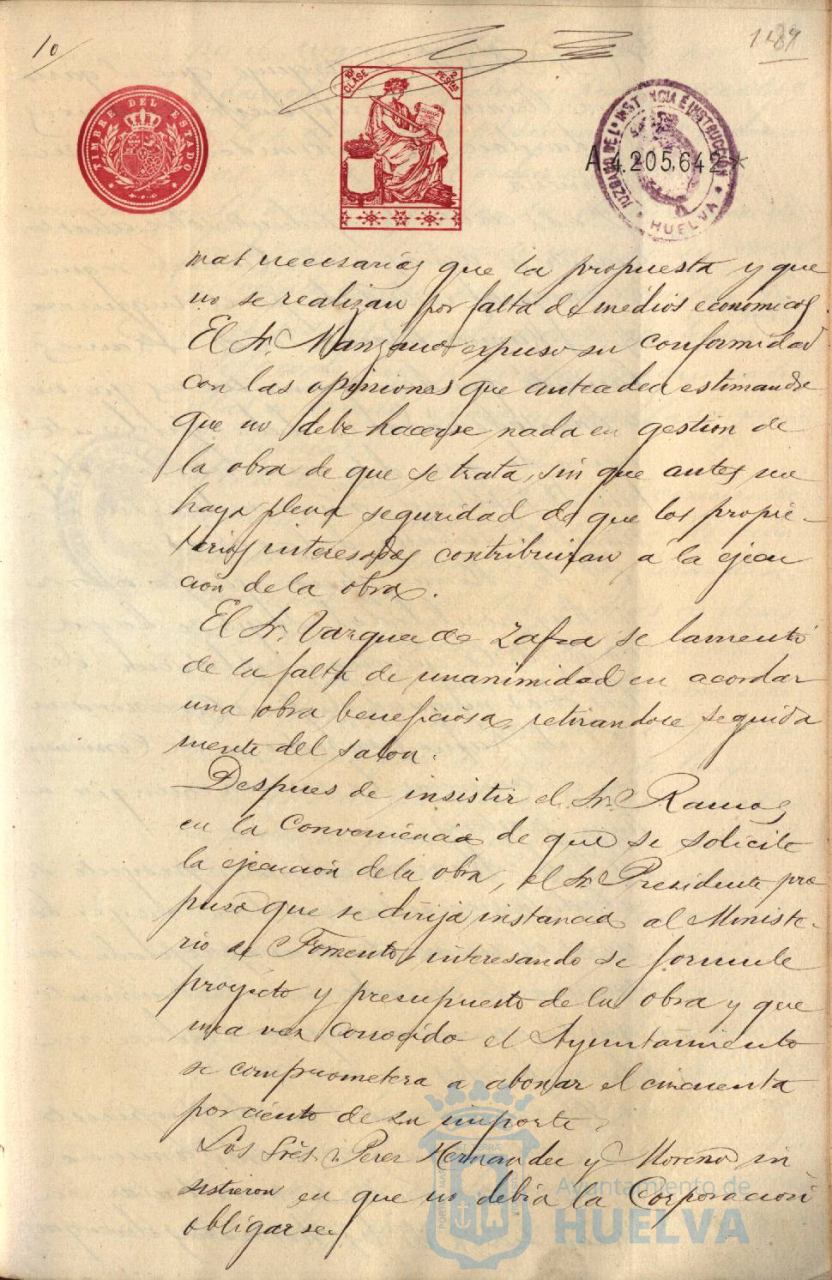 10
189
TIMBRE DEL ESTADO
10ª CLASE 2 PESETAS
JUZGADO DE 1ª INSTANCIA E INSTRUCCIÓN * HUELVA *
A4.205,642*
mas necesarias que la propuesta y que
no se realizan por falta de medios economicos.
El Sr. Manzano expuso su conformidad
con las opiniones que anteceden estimando
que no debe hacerse nada en gestion de
la obra de que se trata, sin que antes
haya plena seguridad de que los propie-
tarios interesados contribuiran, a la ejecu
cion de la obra.
El Sr. Vazquez de Zafra se lamentó
de la falta de unanimidad en acordar
una obra beneficiosa retirandose seguida
mente del salon.
Despues de insistir el Sr. Ramos
en la conveniencia de que se solicite
la ejecucion de la obra, el Sr. Presidente pro
puso que se dirija instancia al Ministe-
rio de Fomento interesando se formule
proyecto y presupuesto de la obra y que
una vez conocido el Ayuntamiento
se comprometera a abonar el cincuenta
por ciento de su importe.
Los Sres. Perez Hernandez y Moreno in
sistieron en que no debia la Corporacion
obligarse
Ayuntamiento de
HUELVA